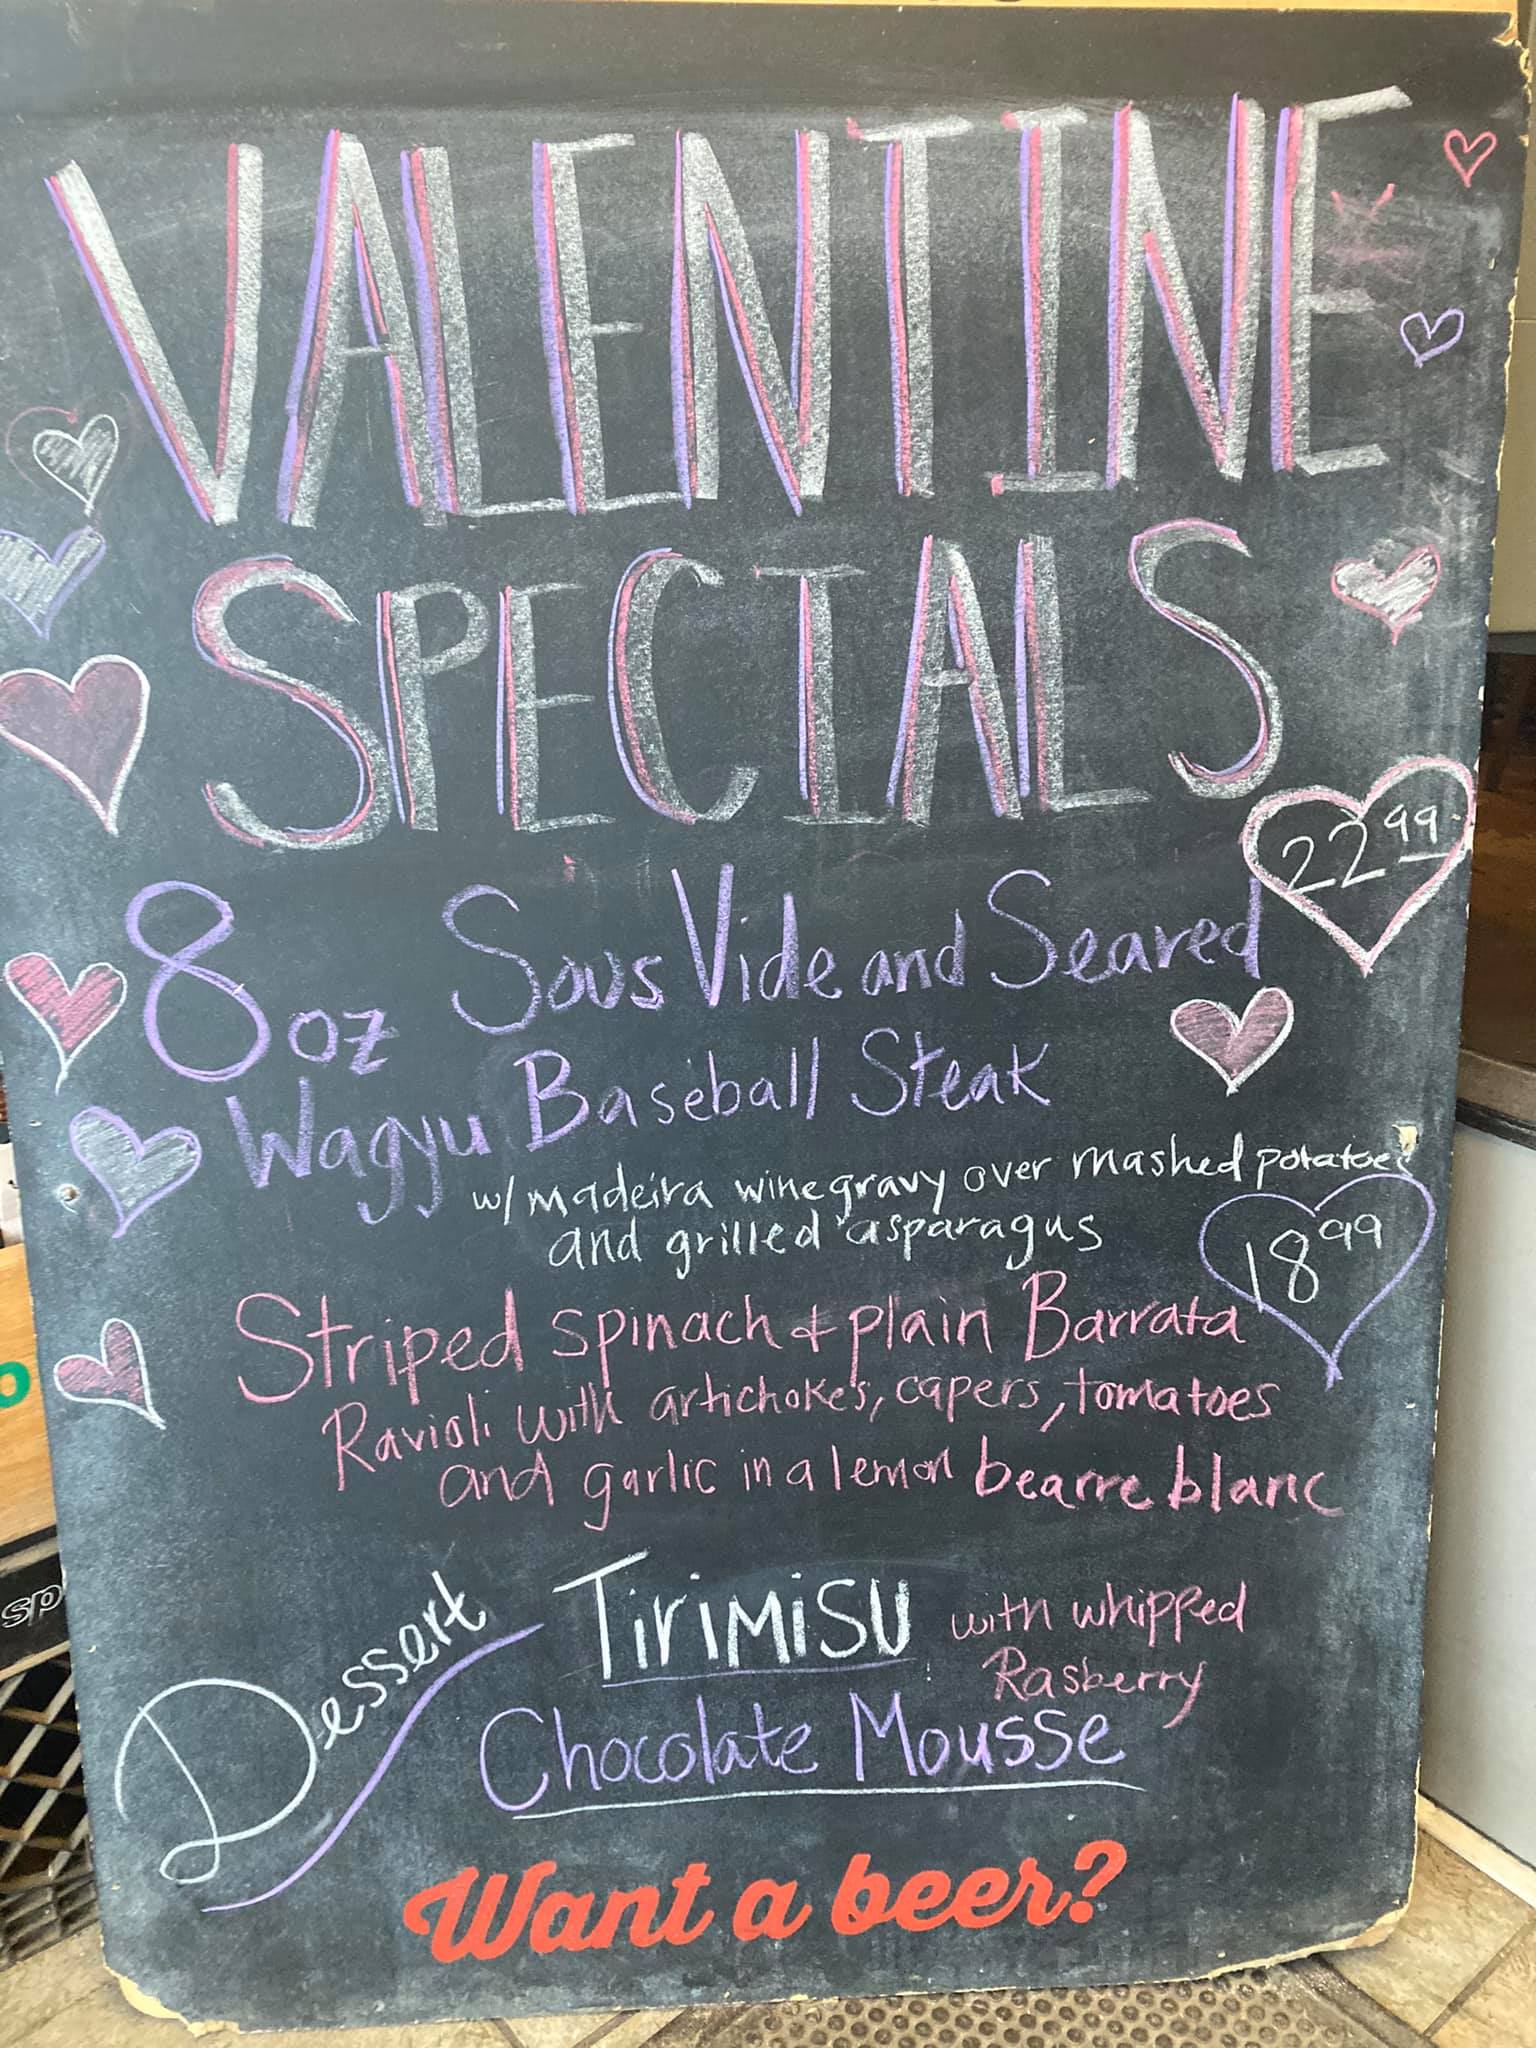 VALENTINE
SPECIALS
22.99
8oz Sous Vide and Seared
Wagyu Baseball Steak
w/ madeira wine gravy over mashed potatoes
and grilled asparagus
18.99
Striped spinach + plain Barrata
Ravioli with artichokes, capers, tomatoes
and garlic in a lemon bearre blanc
Dessert
Tirimisu with whipped
Rasberry
Chocolate Mousse
Want a beer?
sp